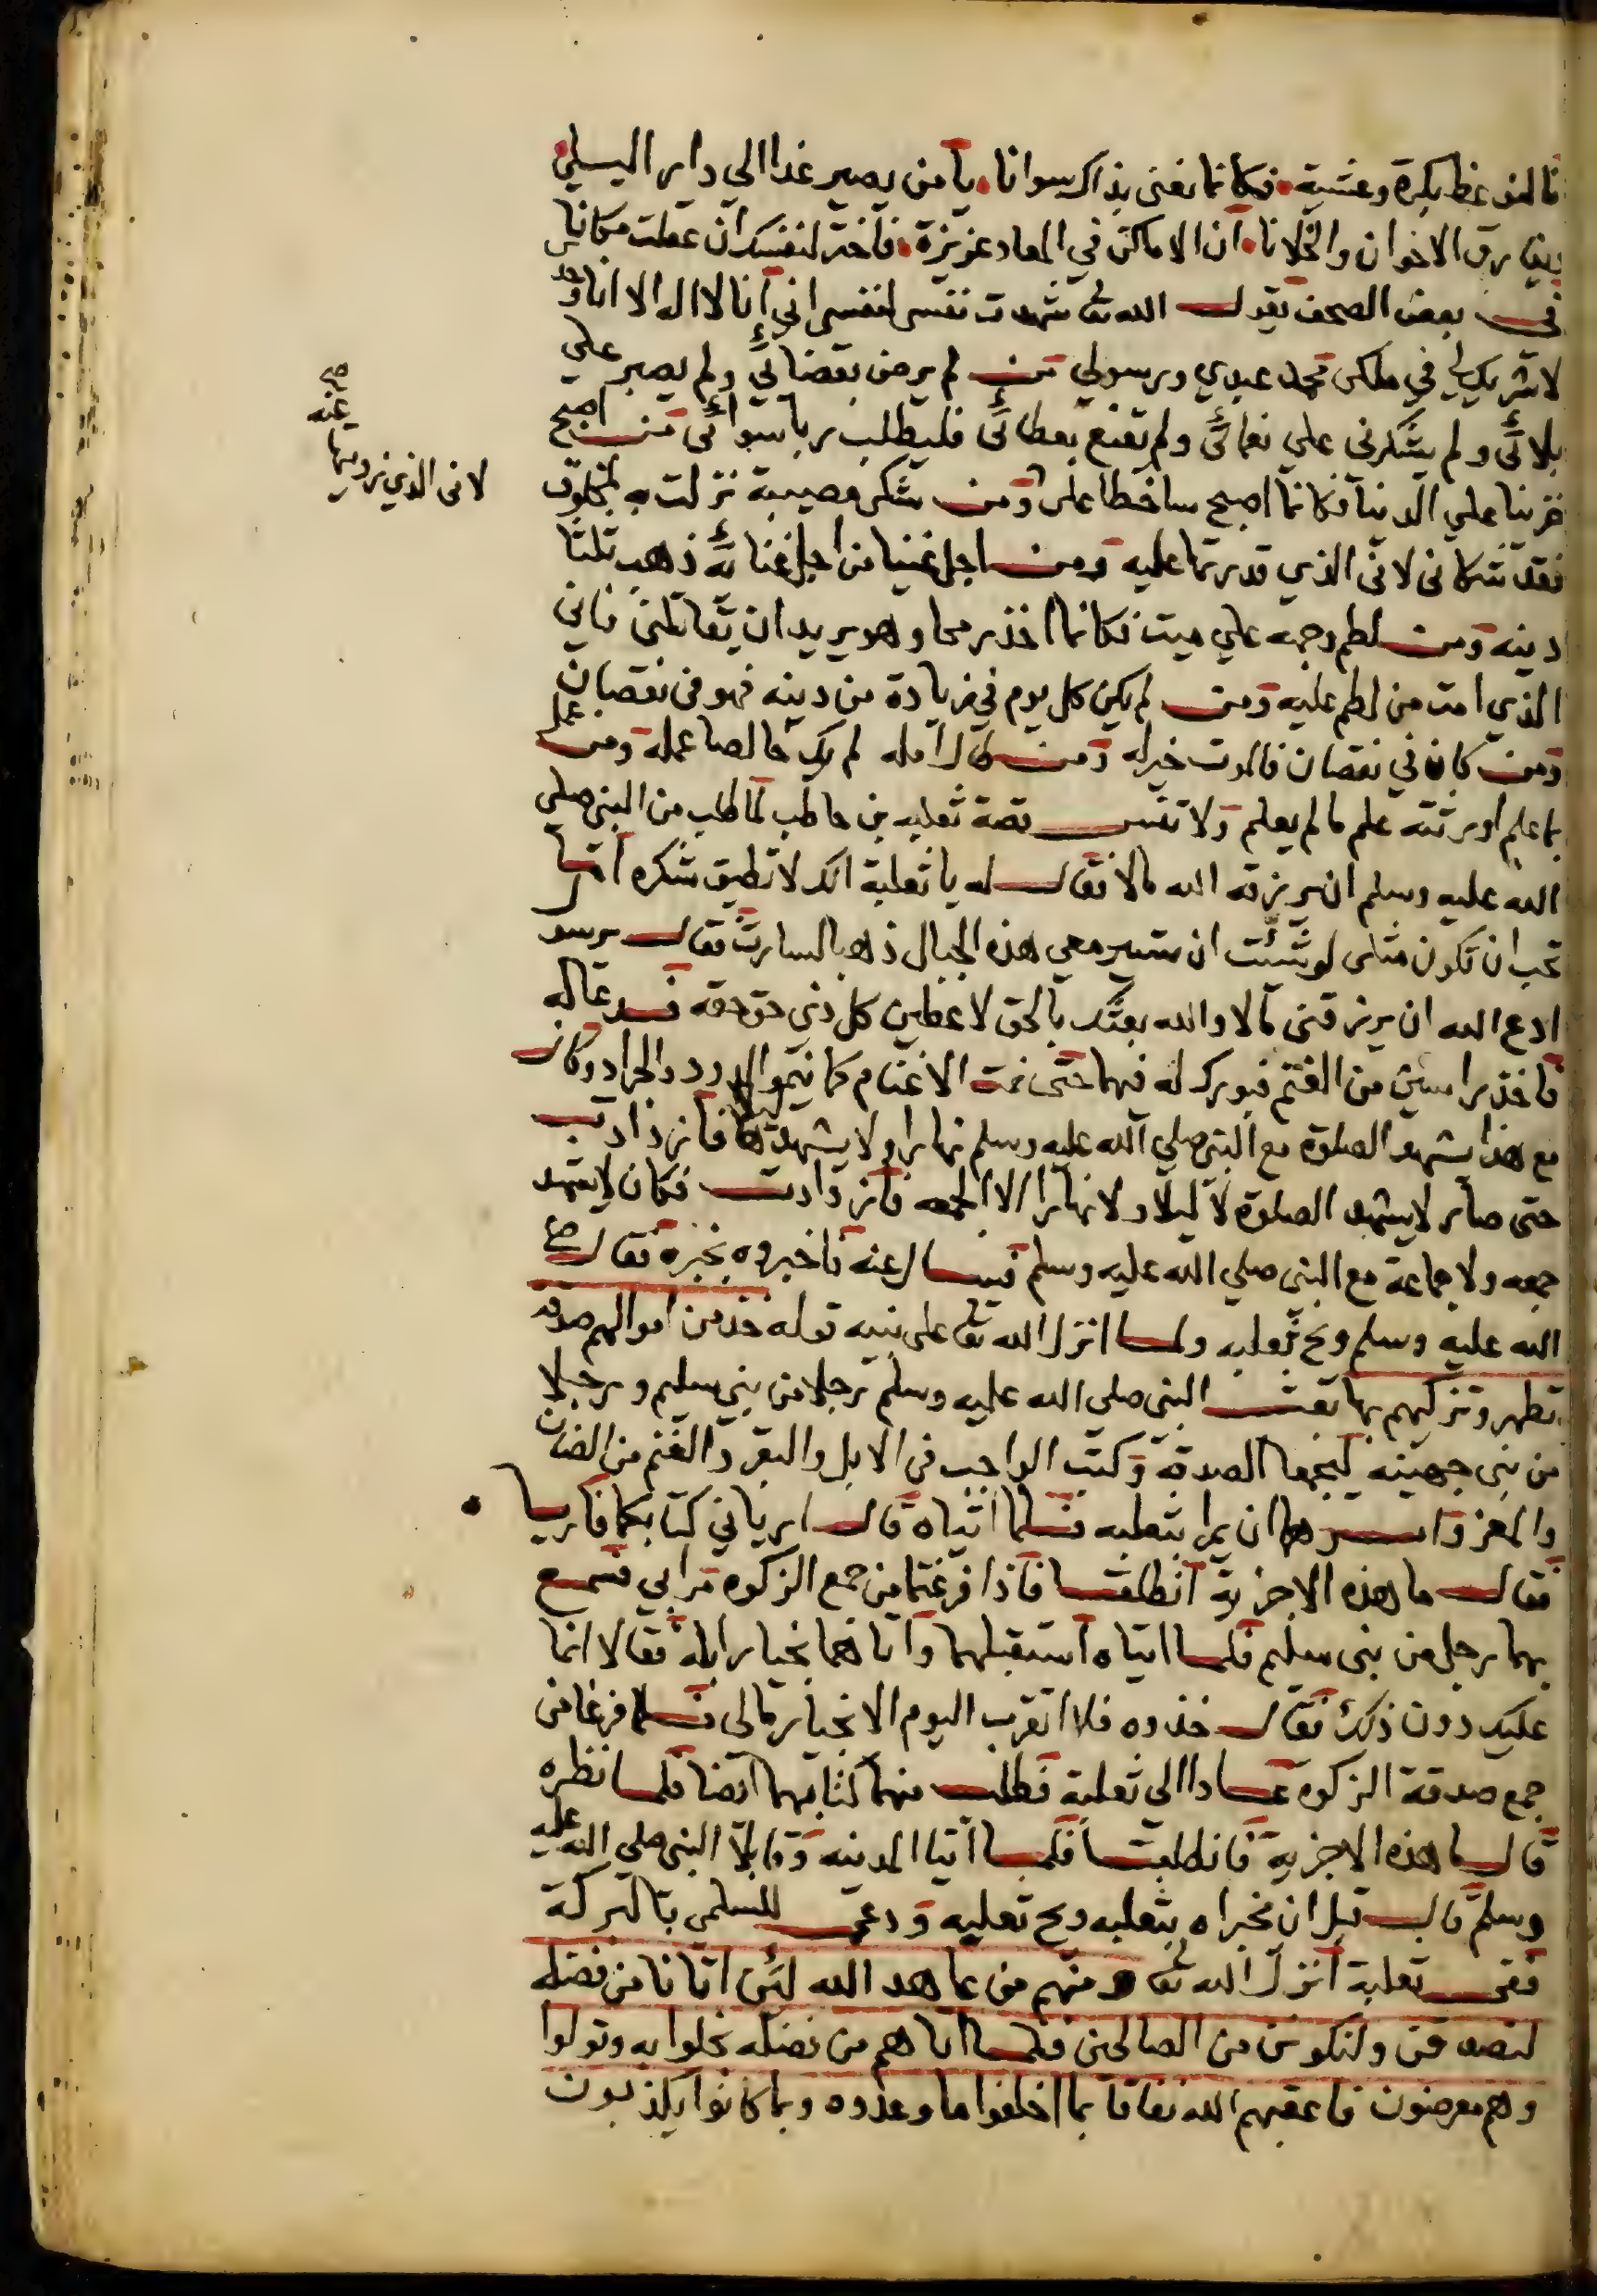 نالمو عظ بكرة وعشية فكانما نعنى بذاك سوانا يا من يصير غدا الي دار البلي
ويفارق الاخوان والخلانا ان الاماكن في المعاد عزيزة فاختر لنفسك ان عقلت مكانا
في بعض الصحف يقول الله تعا شهدت نفسي لنفسي اني انا لا اله الا انا وحدي
لا شريك لي في ملكي محمد عبدي ورسولي من لم يرض بقضائي ولم يصبر علي
بلائي ولم يشكرني علي نعمائي ولم يقنع بعطائي فليطلب ربا سوائي من اصبح
حزينا علي الدنيا فكانما اصبح ساخطا على ومن شكى مصيبة نزلت به لمخلوق
فقد شكاني لانى الذي قدرتها عليه ومن اجل غنيا من اجل غنائه ذهب ثلثا
دينه ومن لطم وجهه علي ميت فكانما اخذ رمحا وهو يريد ان يقاتلني فاني
الذي امت من لطم عليه ومن لم يكن كل يوم في زيادة من دينه فهو في نقصان
ومن كان في نقصان فالموت خير له ومن طال امله لم يك خالصا عمله ومن عمل
بما علم اورثته علم ما لم يعلم ولا تنس قصة ثعلبه بن حاطب لما طلب من النبي صلي
الله عليه وسلم ان يرزقه الله مالا فقال له يا ثعلبة انك لا تطيق شكره اما
تحب ان تكون مثلى لو شئت ان تسير معي هذه الجبال ذهبا لسارت فقال يرسو
ادع الله ان يرزقنى مالا والله بعثك بالحق لاعطين كل ذي حق حقه فدعا له
فاخذ راسين من الغنم فبورك له فيها حتى نمت الاغنام كما ينمو الدود والجراد وكان
مع هذا يشهد الصلوة مع النبي صلي الله عليه وسلم نهارا ولا يشهدها ليلا فازدادت
حتى صار لا يشهد الصلوة لا ليلا ولا نهارا الا الجمعه فازدادت فكان لا يشهد
جمعه ولا جماعة مع النبى صلي الله عليه وسلم فسال عنه فاخبروه بخبره فقال صلي
الله عليه وسلم ويح ثعلبه ولما انزل الله تعا على نبيه قوله خذ من اموالهم صدقة
تطهر وتزكيهم بها بعث النبى صلي الله عليه وسلم رجلا من بني سليم ورجلا
من بنى جهينه ليجمعا الصدقة وكتب الواجب في الابل والبقر والغنم من الضان
والمعز وامرهما ان يمرا بثعلبه فلما اتياه قال ارياني كتابكما فارياه
فقال ما هذه الا جزية انطلقا فاذا فرغتما من جمع الزكوه مرا بي فسمع
بهما رجل من بنى سليم فلما اتياه استقبلهما واتاهما بخيار ابله فقالا انما
عليك دون ذلك فقال خذوه فلا اتقرب اليوم الا بخيار مالى فلما فرغا من
جمع صدقة الزكوة عادا الى ثعلبة فطلب منهما كتابهما ايضا فلما نظره
قال ما هذه الا جزية فانطلقا فلما اتيا المدينه وقابلا النبي صلي الله عليه
وسلم قال قبل ان يخبراه بثعلبه ويح ثعلبه ودعى للسلمي بالبركة
ففى ثعلبة انزل الله تعا ومنهم من عاهد الله لئن اتانا من فضله
لنصدقن ولنكونن من الصالحين فلما اتاهم من فضله بخلوا به وتولوا
وهم معرضون فاعقبهم الله نفاقا بما اخلفوا ما وعدوه وبما كانوا يكذبون
لانى الذي زويتها
عنه
صح